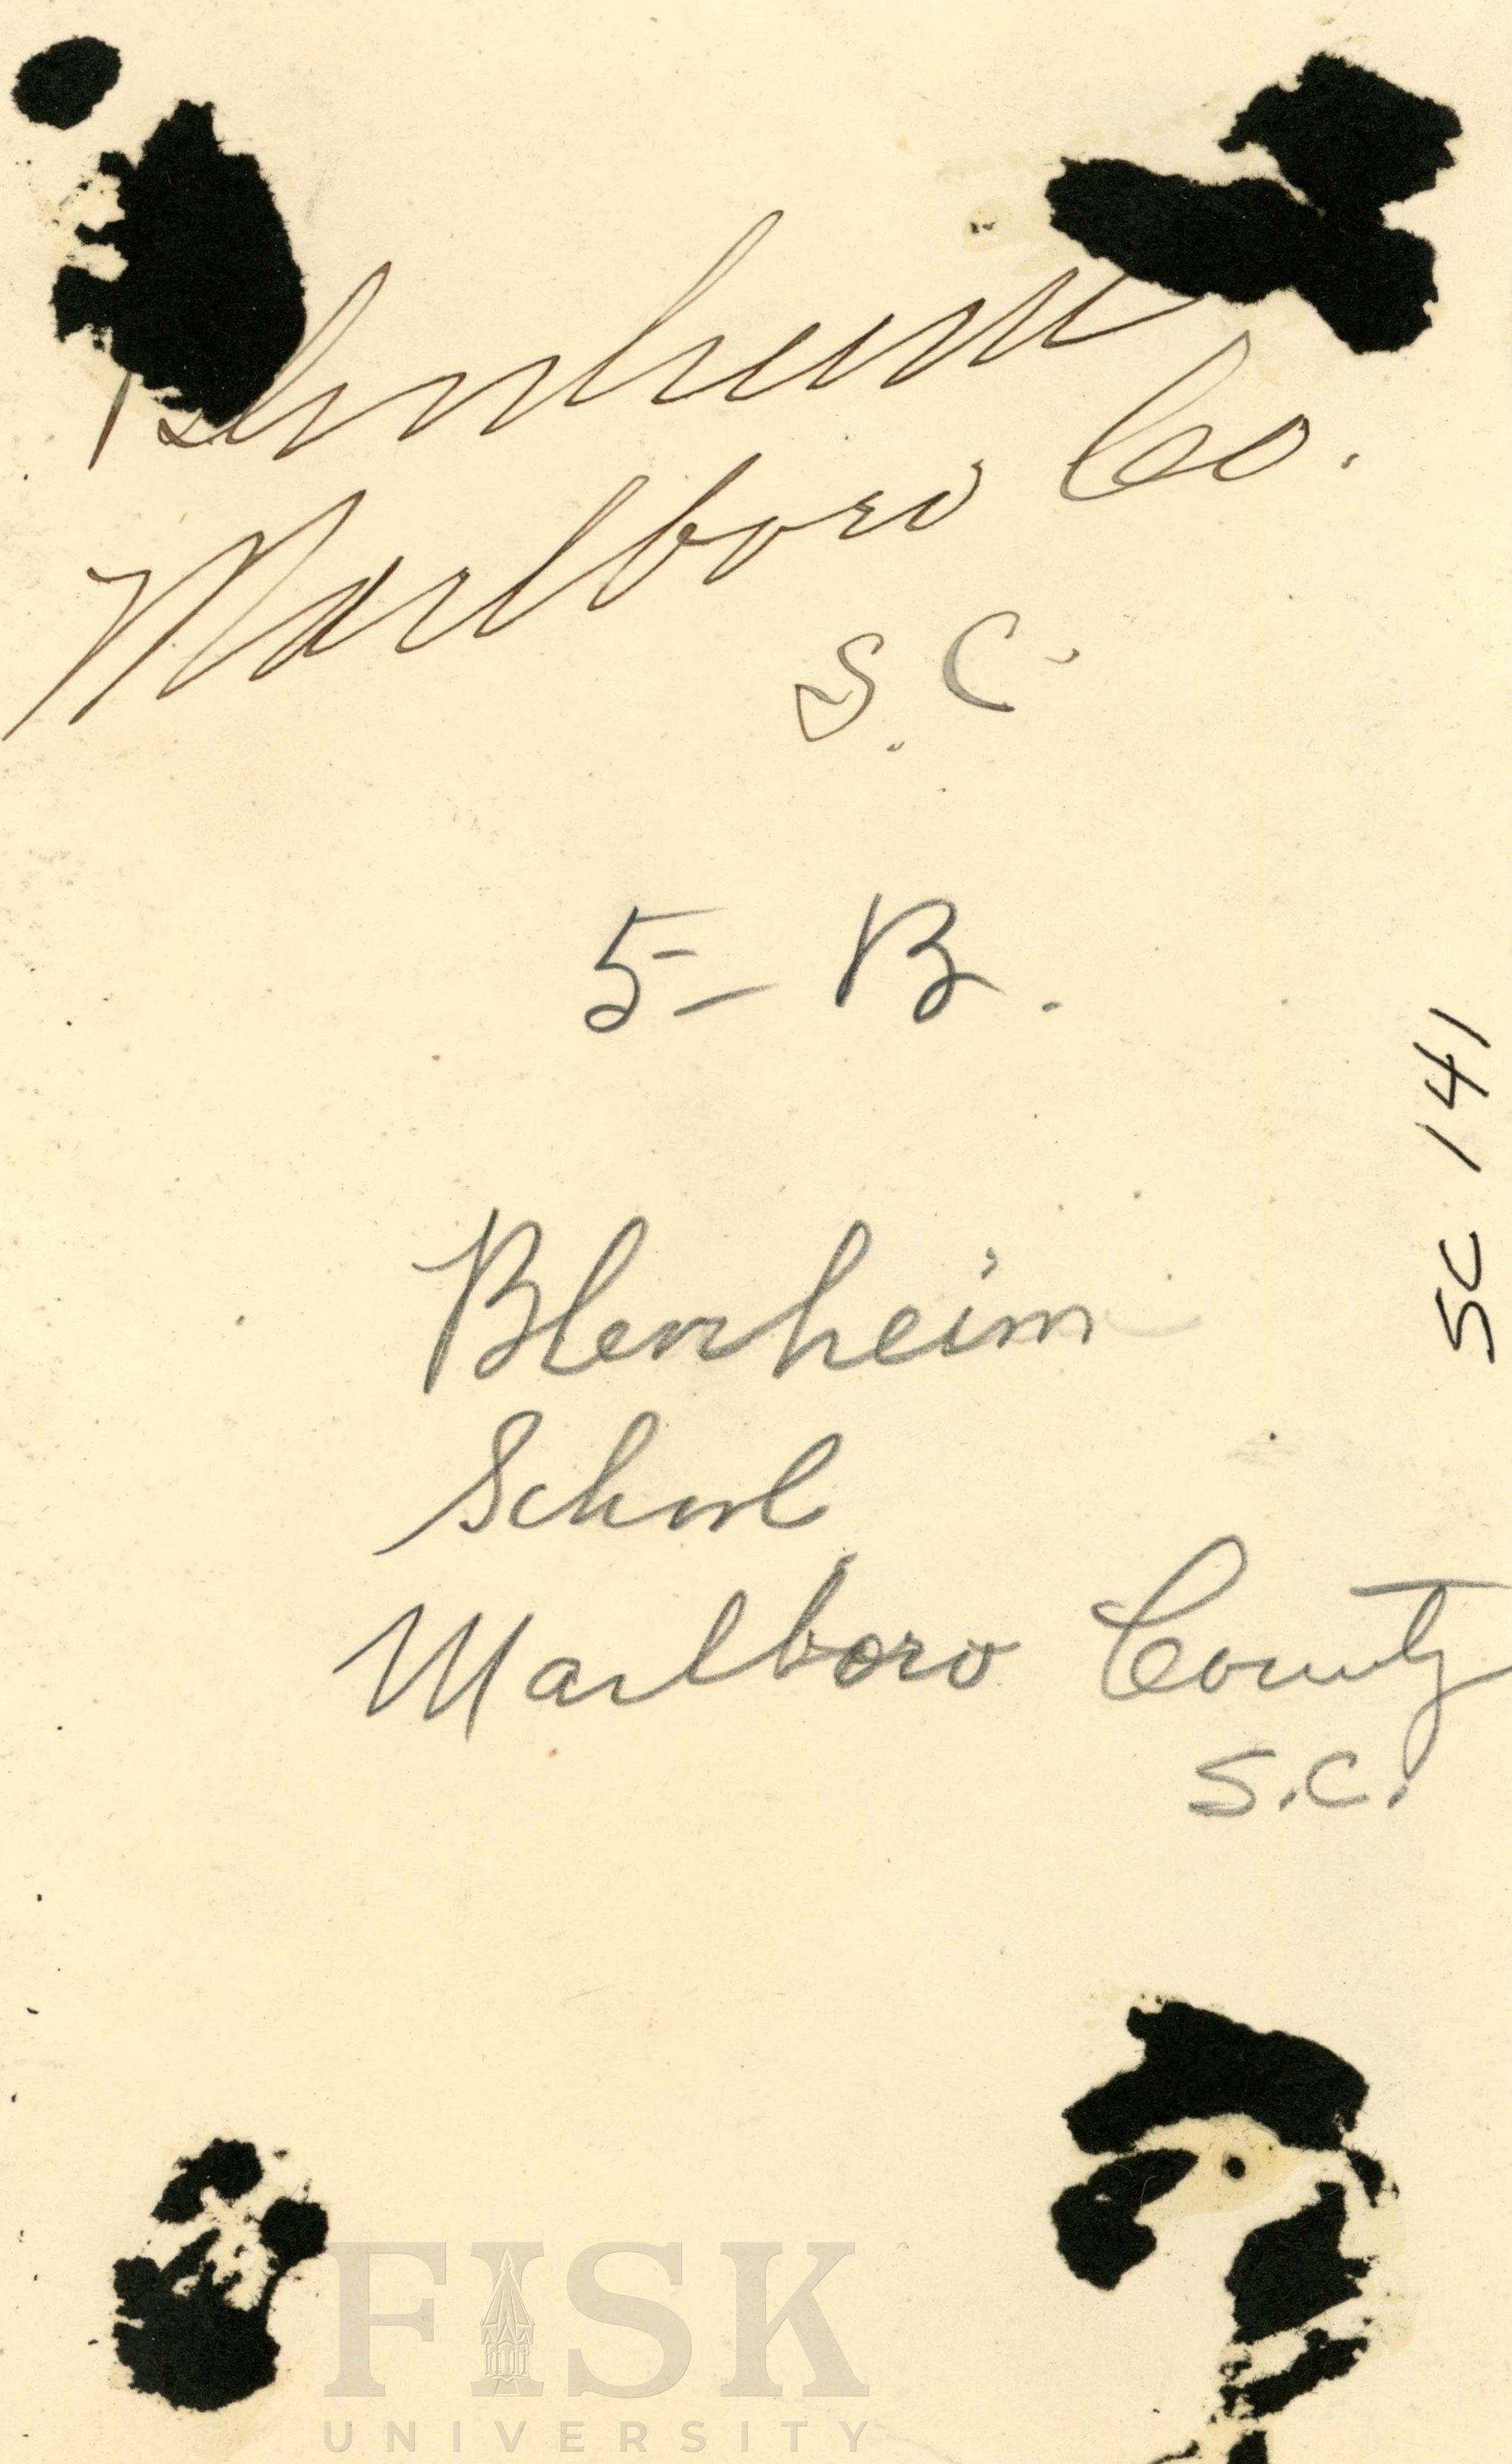 Blenheim
Marlboro Co.
S. C.
5 - B.
SC 141
Blenheim
School
Marlboro County
S.C.
FISK
UNIVERSITY